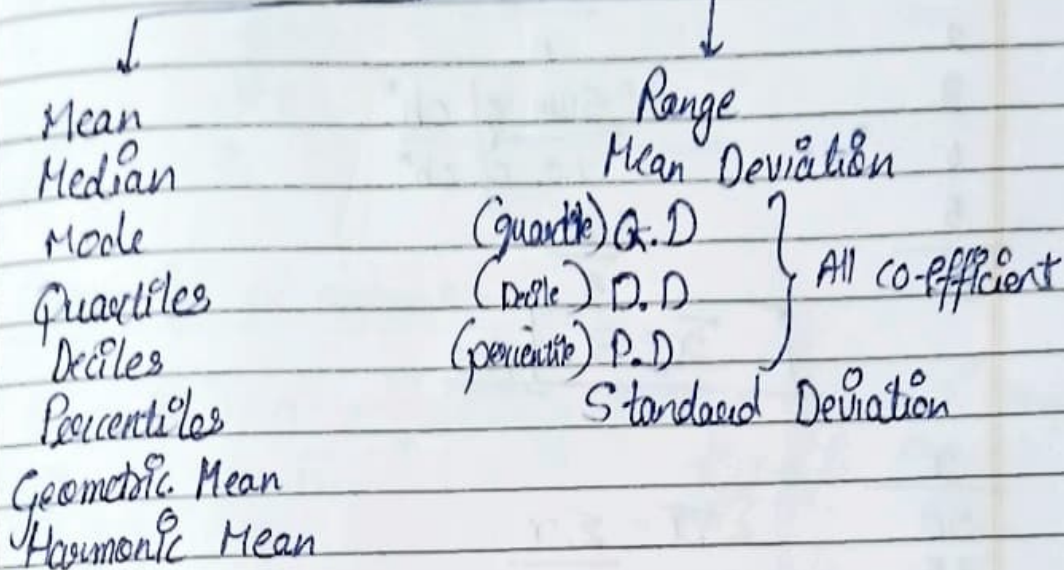 Mean
Median
Mode
Quartiles
Deciles
Percentiles
Geometric Mean
Harmonic Mean
Range
Mean Deviation
(quartile) Q.D
(Decile) D.D
(percentile) P.D
All co-efficient
Standard Deviation